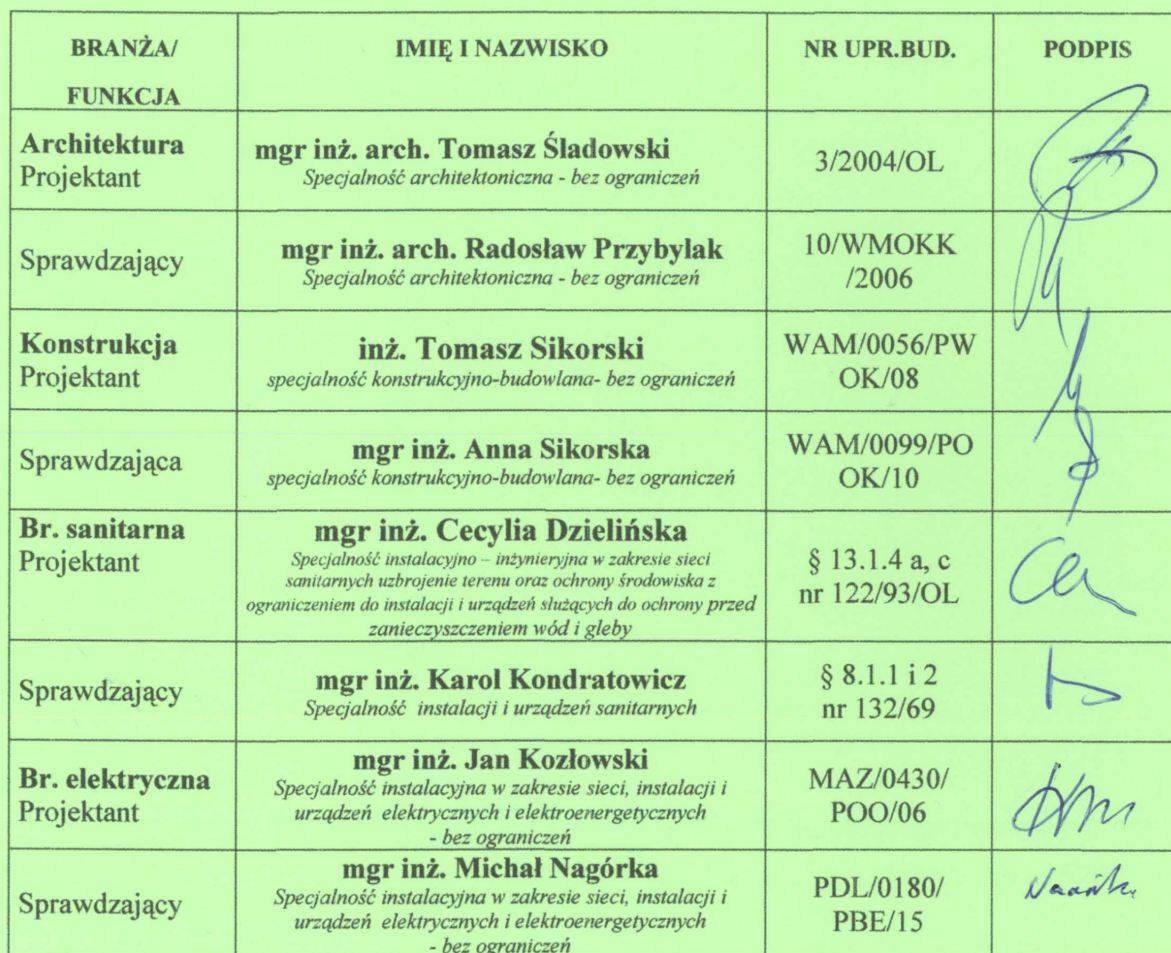 BRANŻA/
FUNKCJA
IMIĘ I NAZWISKO
NR UPR.BUD.
PODPIS
Architektura
Projektant
mgr inż. arch. Tomasz Śladowski
Specjalność architektoniczna - bez ograniczeń
3/2004/OL
Sprawdzający
mgr inż. arch. Radosław Przybylak
Specjalność architektoniczna - bez ograniczeń
10/WMOKK
/2006
Konstrukcja
Projektant
inż. Tomasz Sikorski
specjalność konstrukcyjno-budowlana- bez ograniczeń
WAM/0056/PW
OK/08
Sprawdzająca
mgr inż. Anna Sikorska
specjalność konstrukcyjno-budowlana- bez ograniczeń
WAM/0099/PO
OK/10
Br. sanitarna
Projektant
mgr inż. Cecylia Dzielińska
Specjalność instalacyjno – inżynieryjna w zakresie sieci
sanitarnych uzbrojenie terenu oraz ochrony środowiska z
ograniczeniem do instalacji i urządzeń służących do ochrony przed
zanieczyszczeniem wód i gleby
§ 13.1.4 a, c
nr 122/93/OL
Sprawdzający
mgr inż. Karol Kondratowicz
Specjalność instalacji i urządzeń sanitarnych
§ 8.1.1 i 2
nr 132/69
Br. elektryczna
Projektant
mgr inż. Jan Kozłowski
Specjalność instalacyjna w zakresie sieci, instalacji i
urządzeń elektrycznych i elektroenergetycznych
- bez ograniczeń
MAZ/0430/
POO/06
Sprawdzający
mgr inż. Michał Nagórka
Specjalność instalacyjna w zakresie sieci, instalacji i
urządzeń elektrycznych i elektroenergetycznych
- bez ograniczeń
PDL/0180/
PBE/15